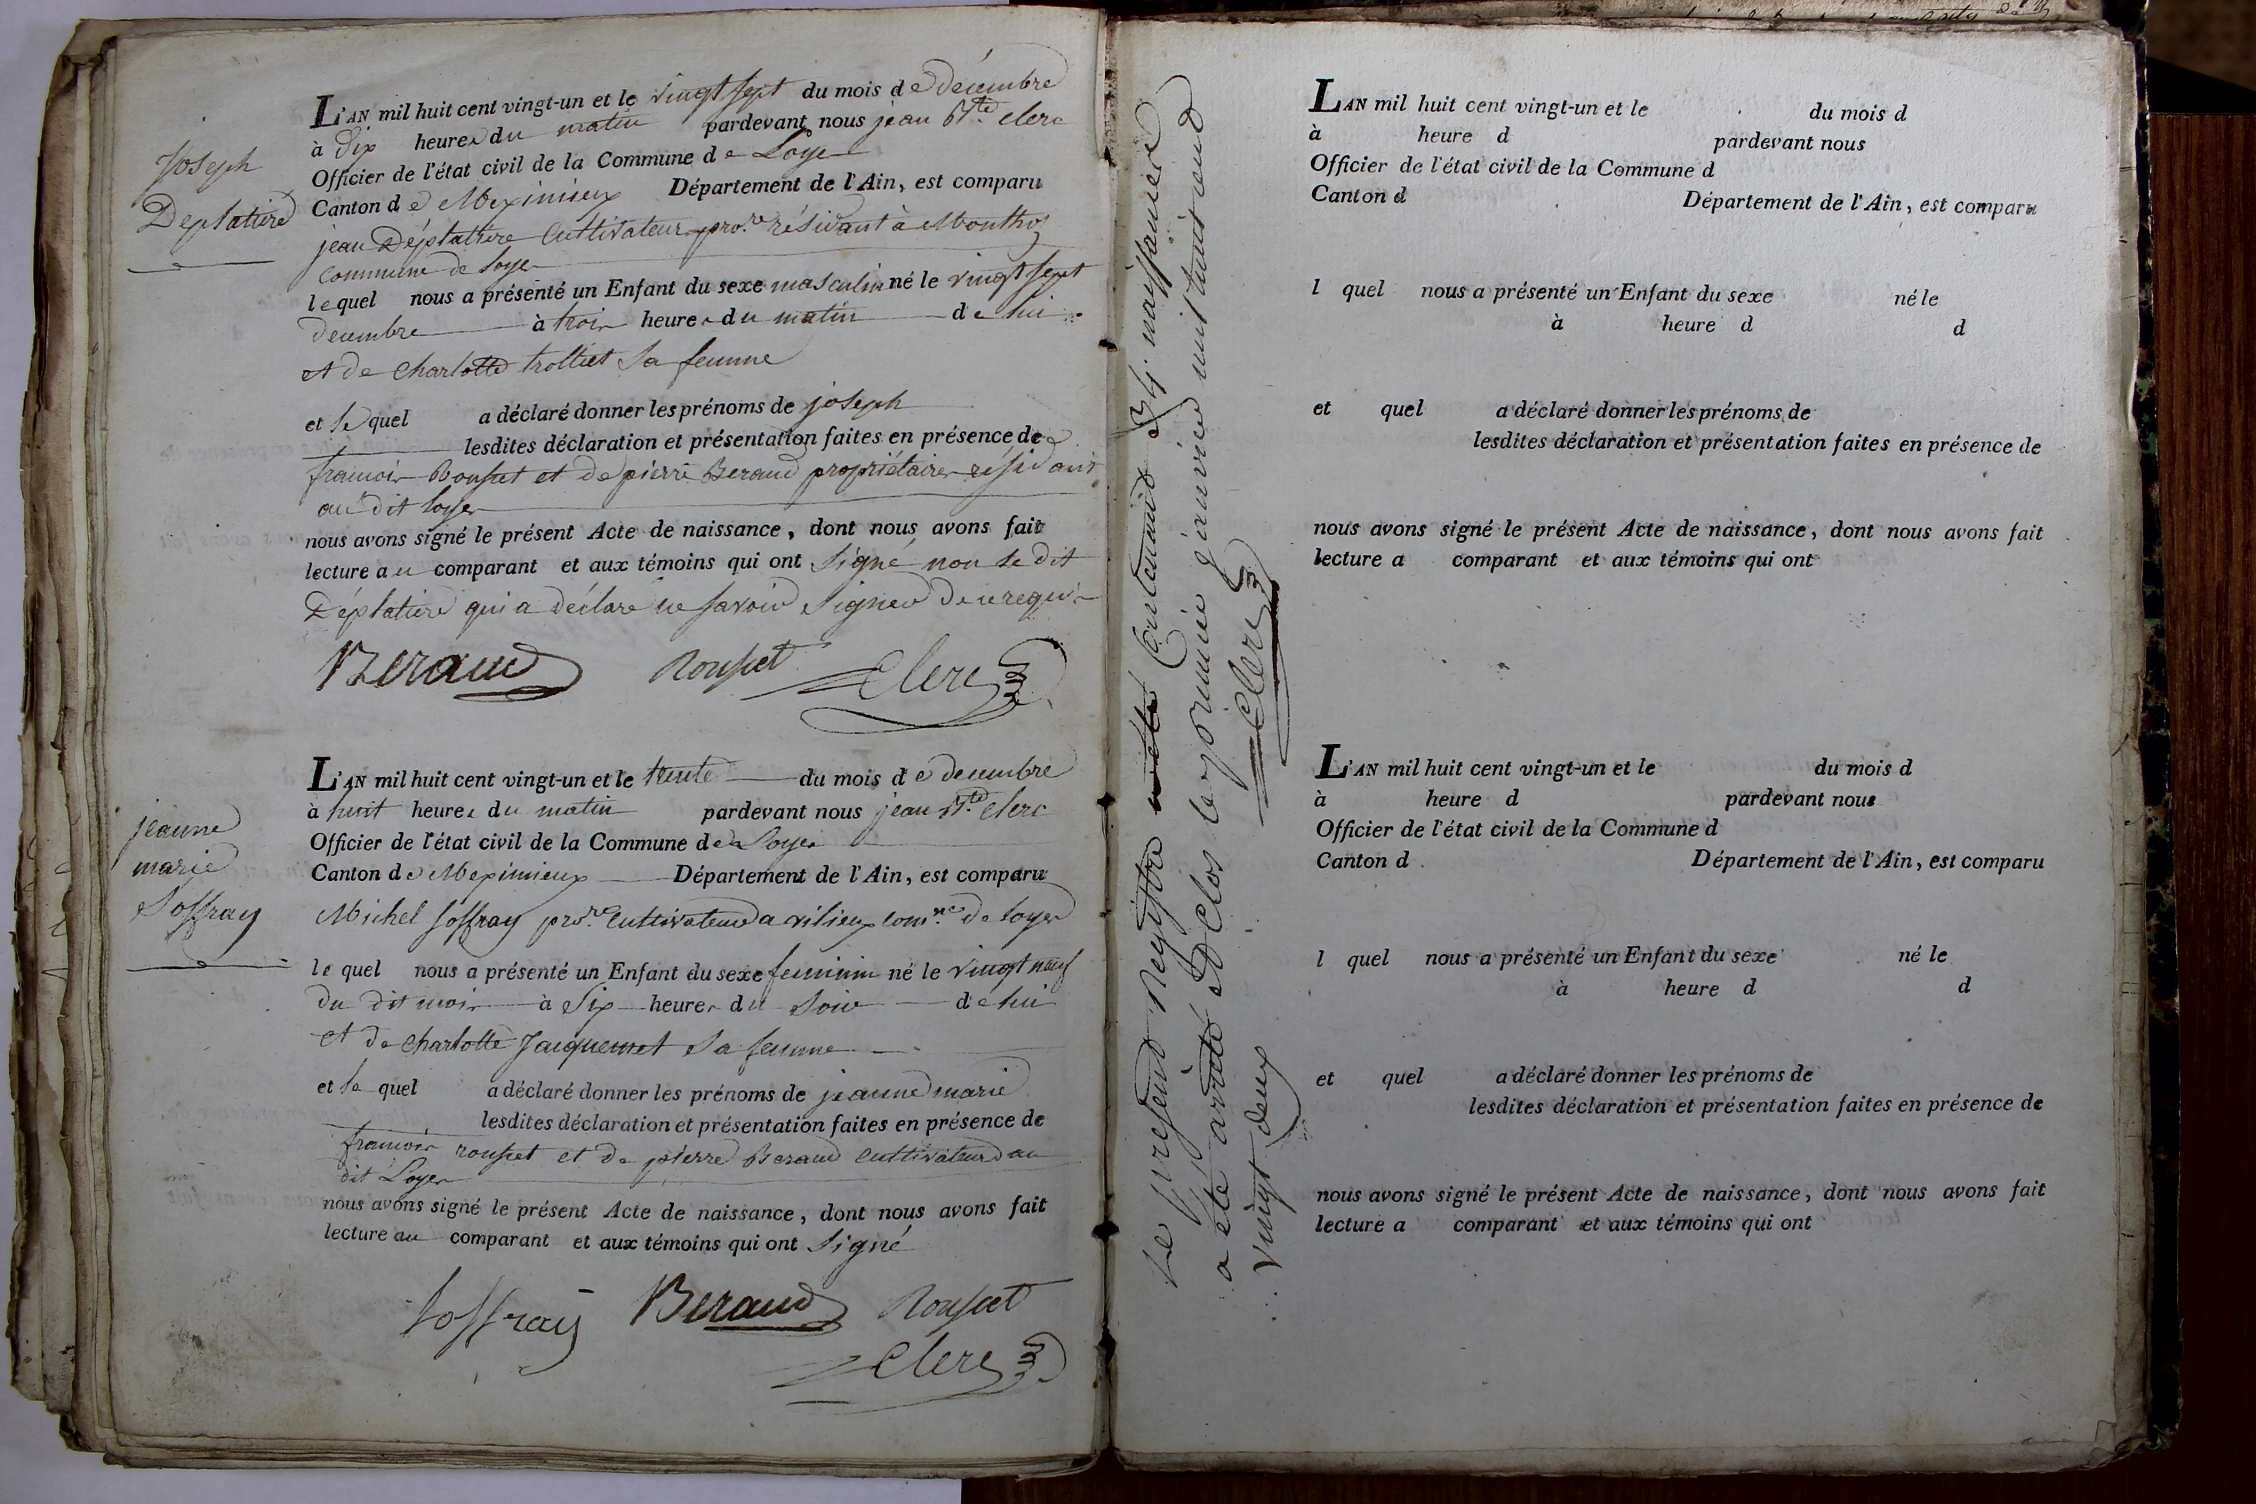 Joseph
Déplatiere
L'AN mil huit cent vingt-un et le vingt sept du mois de décembre
à dix heures du matin pardevant nous jean Bte. clerc
Officier de l'état civil de la Commune de Loyes
Canton de Meximieux Département de l'Ain, est comparu
jean Déplattiere Cultivateur pro.re résidant à Monthoz
commune de Loyes
lequel nous a présenté un Enfant du sexe masculin né le vingt sept
decembre à trois heures du matin de lui
et de charlotte trolliet sa femme
et lequel a déclaré donner les prénoms de joseph
lesdites déclaration et présentation faites en présence de
francois Rousset et de pierre Beraud propriétaires résidants
au dit Loyes
nous avons signé le présent Acte de naissance, dont nous avons fait
lecture au comparant et aux témoins qui ont signé non le dit
Déplatiere qui a déclaré ne savoir signer de ce requis
Beraud Rousset Clerc
jeanne
marie
Soffray
L'AN mil huit cent vingt-un et le trente du mois de decembre
à huit heures du matin pardevant nous jean Bte. clerc
Officier de l'état civil de la Commune de Loyes
Canton de Meximieux Département de l'Ain, est comparu
Michel Soffray pro.re Cultivateur a vilieux com.ne de Loyes
lequel nous a présenté un Enfant du sexe feminin né le vingt neuf
du dit mois à Six heures du Soir de lui
et de charlotte Jacquemet sa femme
et le quel a déclaré donner les prénoms de jeanne marie
lesdites déclaration et présentation faites en présence de
francois rousset et de pierre Beraud cultivateurs au
dit Loyes
nous avons signé le présent Acte de naissance, dont nous avons fait
lecture au comparant et aux témoins qui ont Signé
Soffray Beraud Rousset
Clerc
Le présent Registre Contenant naissances
a été arrêté et Clos le premier janvier mil huit cent
vingt deux
Clerc
L'AN mil huit cent vingt-un et le du mois d
à heure d pardevant nous
Officier de l'état civil de la Commune d
Canton d Département de l'Ain, est comparu
l quel nous a présenté un Enfant du sexe né le
à heure d d
et quel a déclaré donner les prénoms de
lesdites déclaration et présentation faites en présence de
nous avons signé le présent Acte de naissance, dont nous avons fait
lecture a comparant et aux témoins qui ont
L'AN mil huit cent vingt-un et le du mois d
à heure d pardevant nous
Officier de l'état civil de la Commune d
Canton d Département de l'Ain, est comparu
l quel nous a présenté un Enfant du sexe né le
à heure d d
et quel a déclaré donner les prénoms de
lesdites déclaration et présentation faites en présence de
nous avons signé le présent Acte de naissance, dont nous avons fait
lecture a comparant et aux témoins qui ont